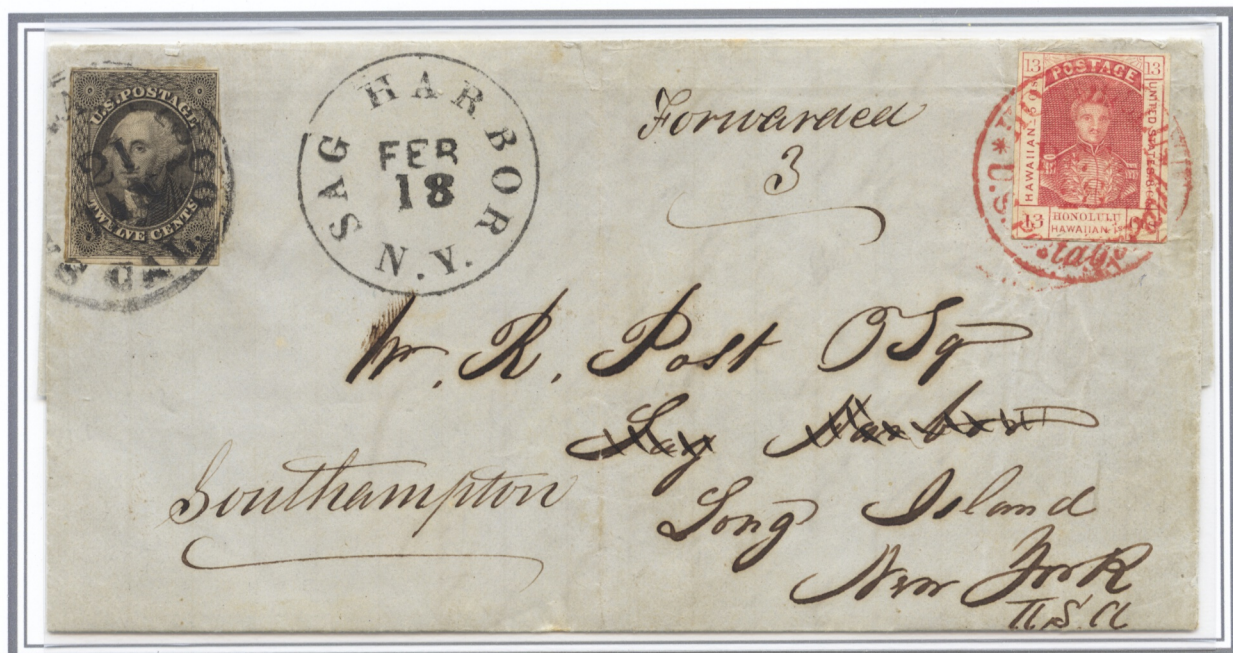 U.S. POSTAGE
TWELVE CENTS
CAL.
SAG HARBOR
FEB
18
N.Y.
Forwarded
3
13 POSTAGE 13
HAWAIIAN
UNITED STATES
13 HONOLULU
HAWAIIAN
U.S.
W. R. Post ESq
Sag Harbor
Southampton
Long Island
New York
U.S.A